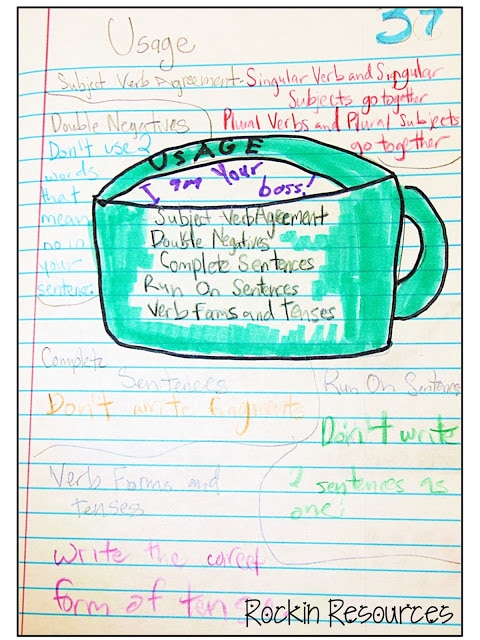 37
Usage
Subject Verb Agreement - Singular Verb and Singular
Subjects go together
Plural Verbs and Plural Subjects
go together
Double Negatives
Don't use 2
words
that
mean
no in
your
sentence.
USAGE
I am your
boss!
Subject Verb Agreement
Double Negatives
Complete Sentences
Run On Sentences
Verb Foms and Tenses
Complete
Sentences
Don't write fragments
Run On Sentences
Don't write
2 sentences as
one!
Verb Forms and
tenses
write the
form of
Rockin Resources